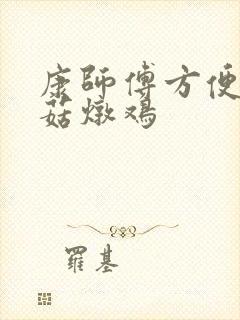 康師傅方便
菇燉鸡
羅基